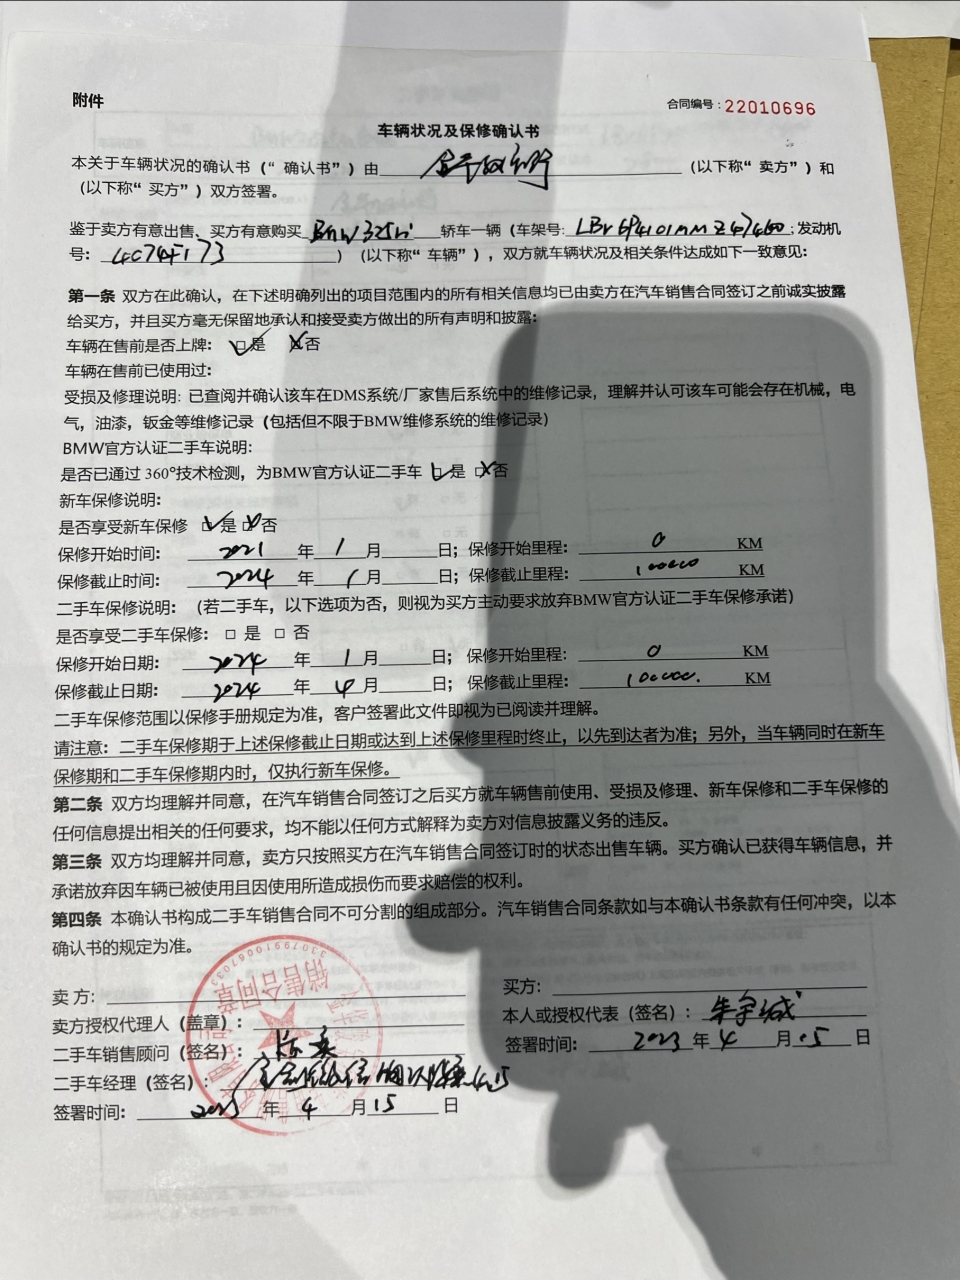 附件
合同编号：22010696
车辆状况及保修确认书
本关于车辆状况的确认书（“确认书”）由 （以下称“卖方”）和
（以下称“买方”）双方签署。
鉴于卖方有意出售、买方有意购买 BMW 325Li 轿车一辆（车架号: ；发动机
号: 4C74F173 ）（以下称“车辆”），双方就车辆状况及相关条件达成如下一致意见:
第一条 双方在此确认，在下述明确列出的项目范围内的所有相关信息均已由卖方在汽车销售合同签订之前诚实披露
给买方，并且买方毫无保留地承认和接受卖方做出的所有声明和披露:
车辆在售前是否上牌: ☑是 ☒否
车辆在售前已使用过:
受损及修理说明: 已查阅并确认该车在DMS系统/厂家售后系统中的维修记录，理解并认可该车可能会存在机械，电
气，油漆，钣金等维修记录（包括但不限于BMW维修系统的维修记录）
BMW官方认证二手车说明:
是否已通过 360°技术检测，为BMW官方认证二手车 ☑是 ☒否
新车保修说明:
是否享受新车保修 ☑是 ☒否
保修开始时间: 2021 年 1 月 日；保修开始里程: 0 KM
保修截止时间: 2024 年 1 月 日；保修截止里程: 100000 KM
二手车保修说明: （若二手车，以下选项为否，则视为买方主动要求放弃BMW官方认证二手车保修承诺）
是否享受二手车保修: □ 是 □ 否
保修开始日期: 2024 年 1 月 日；保修开始里程: 0 KM
保修截止日期: 2024 年 4 月 日；保修截止里程: 100000. KM
二手车保修范围以保修手册规定为准，客户签署此文件即视为已阅读并理解。
请注意: 二手车保修期于上述保修截止日期或达到上述保修里程时终止，以先到达者为准；另外，当车辆同时在新车
保修期和二手车保修期内时，仅执行新车保修。
第二条 双方均理解并同意，在汽车销售合同签订之后买方就车辆售前使用、受损及修理、新车保修和二手车保修的
任何信息提出相关的任何要求，均不能以任何方式解释为卖方对信息披露义务的违反。
第三条 双方均理解并同意，卖方只按照买方在汽车销售合同签订时的状态出售车辆。买方确认已获得车辆信息，并
承诺放弃因车辆已被使用且因使用所造成损伤而要求赔偿的权利。
第四条 本确认书构成二手车销售合同不可分割的组成部分。汽车销售合同条款如与本确认书条款有任何冲突，以本
确认书的规定为准。
销售合同章
卖 方:
卖方授权代理人（盖章）:
二手车销售顾问（签名）:
二手车经理（签名）:
签署时间: 2023 年 4 月 15 日
买方:
本人或授权代表（签名）: 朱宇城
签署时间: 2023 年 4 月 15 日